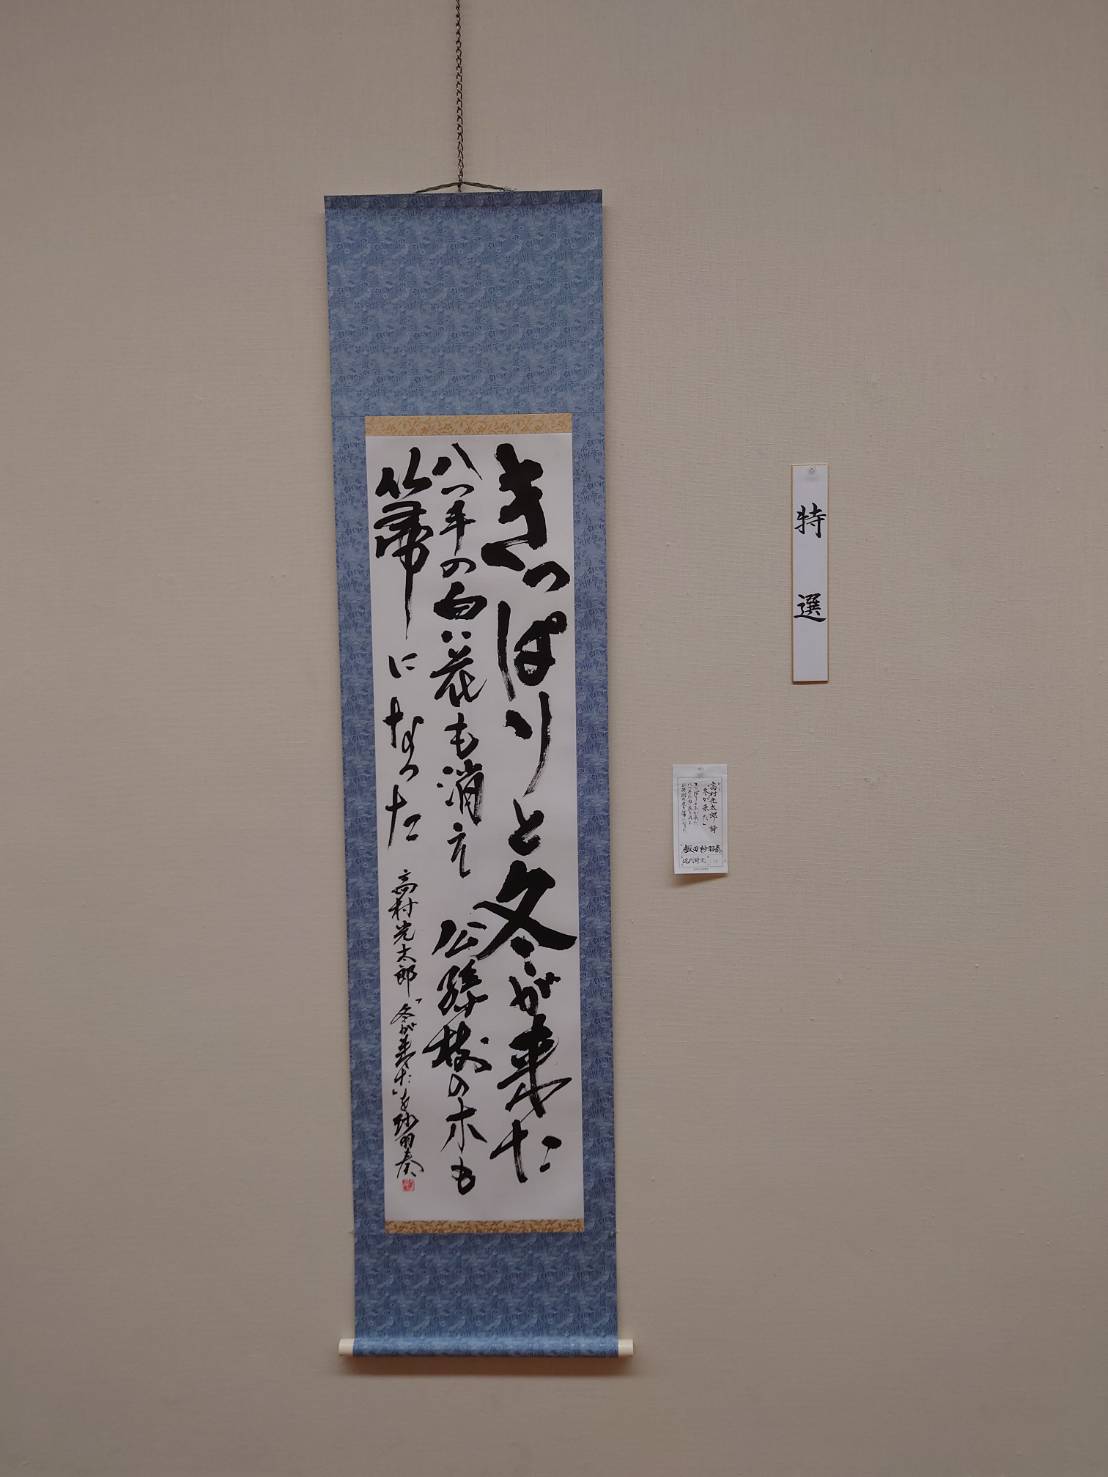 きっぱりと冬が来た
八つ手の白い花も消え 公孫樹の木も
箒になった 高村光太郎「冬が来た」を 紗羽奏
特選
高村光太郎 詩
「冬が来た」